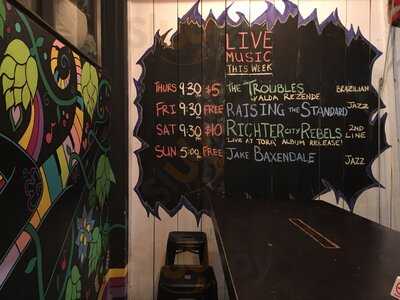 LIVE
MUSIC
THIS WEEK
THURS 9:30 $5 THE TROUBLES BRAZILIAN
WALDA REZENDE
FRI 9:30 FREE RAISING THE STANDARD JAZZ
SAT 9:30 $10 RICHTER CITY REBELS 2ND LINE
LIVE AT TORA' ALBUM RELEASE!
SUN 5:00 FREE JAKE BAXENDALE JAZZ